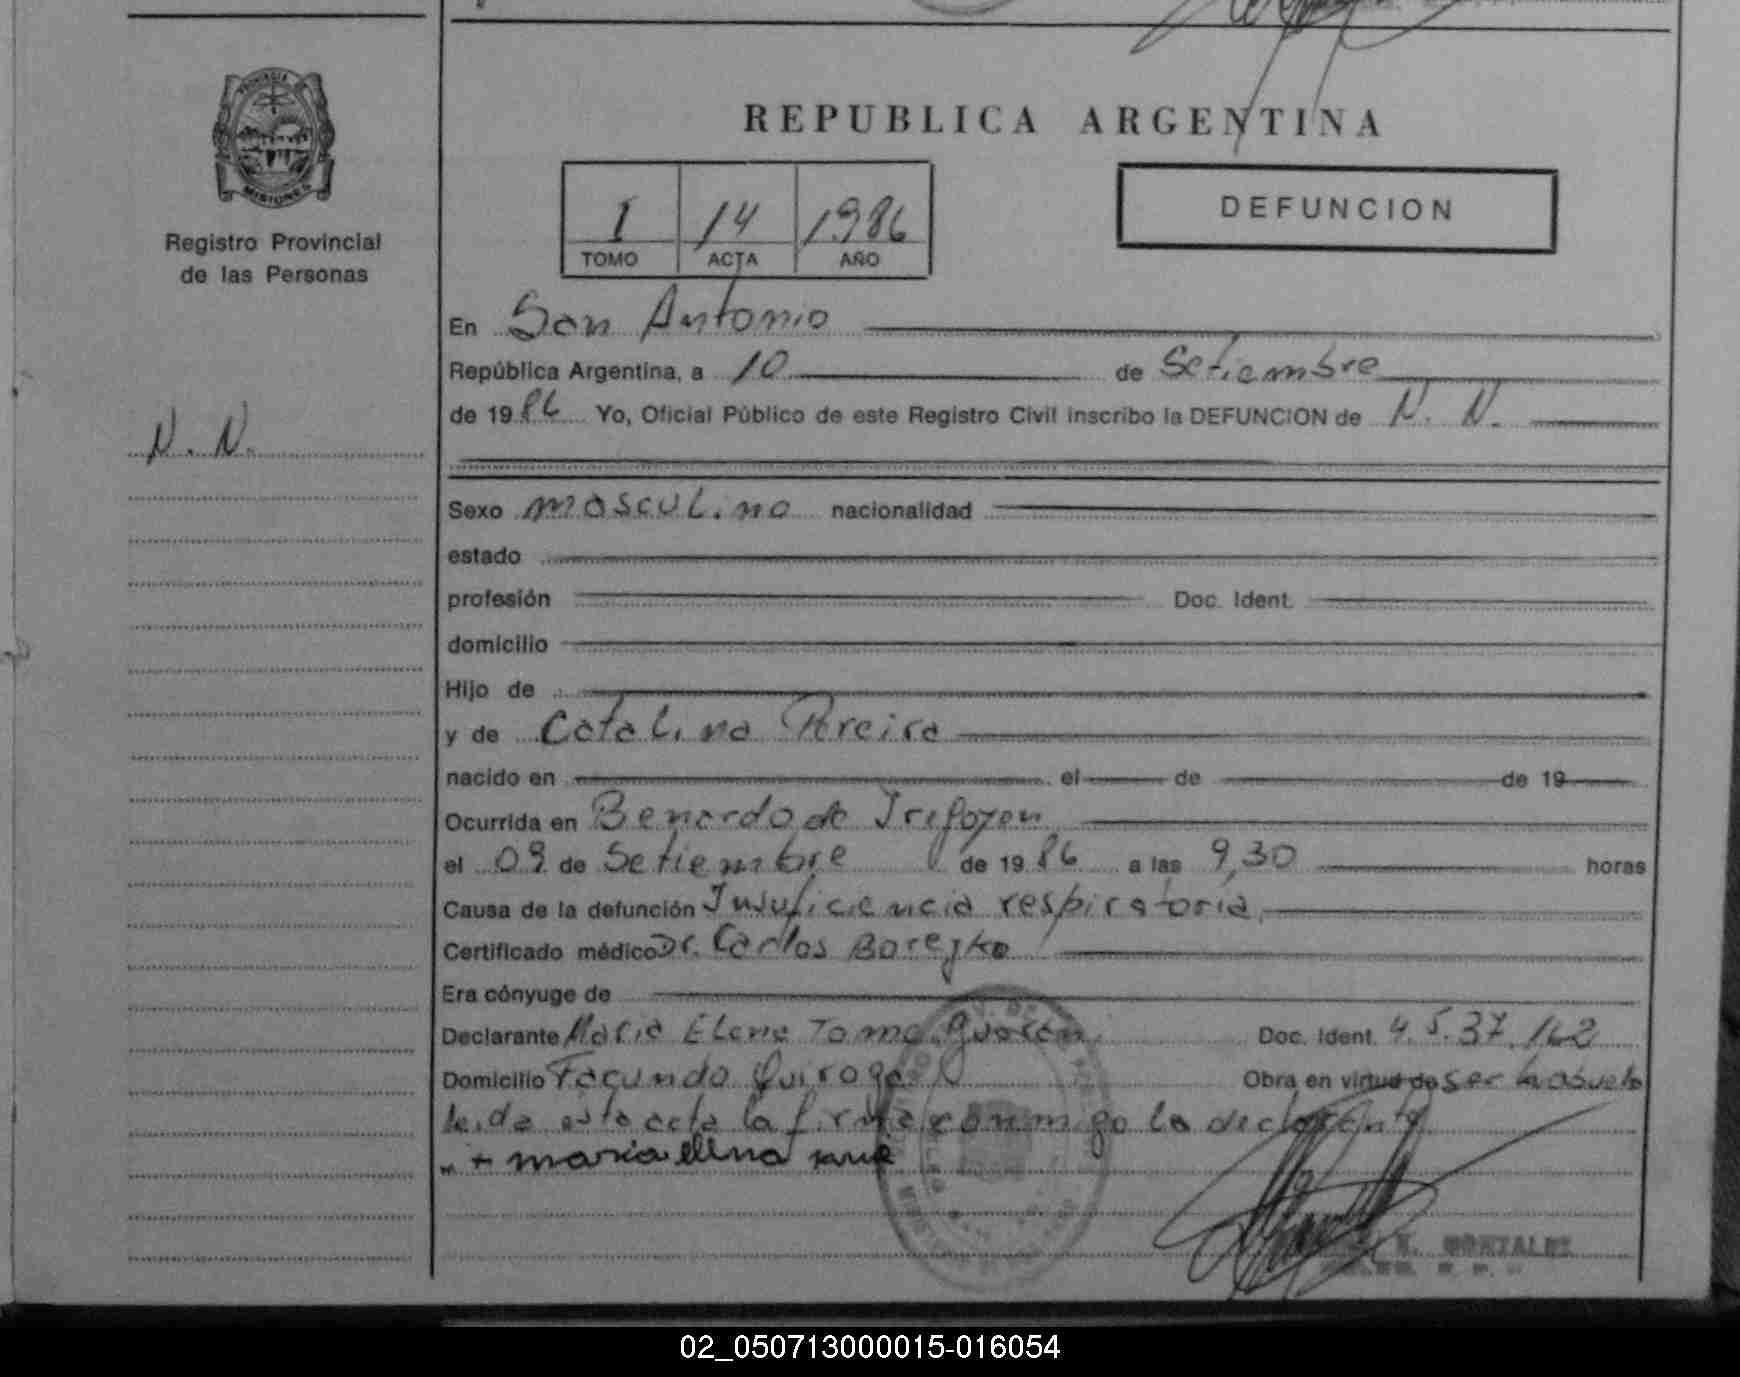 PROVINCIA
MISIONES
Registro Provincial
de las Personas
N. N.
REPUBLICA ARGENTINA
I 14 1986
TOMO ACTA AÑO
DEFUNCION
En San Antonio
República Argentina, a 10 de Setiembre
de 1986 Yo, Oficial Público de este Registro Civil inscribo la DEFUNCION de N. N.
Sexo masculino nacionalidad
estado
profesión Doc. Ident.
domicilio
Hijo de
y de Catalina Pereira
nacido en el de de 19
Ocurrida en Benardo de Irigoyen
el 09 de Setiembre de 1986 a las 9,30 horas
Causa de la defunción Insuficiencia respiratoria
Certificado médico Dr. Carlos Borejko
Era cónyuge de
Declarante Maria Elena Doc. Ident. 4.537.162
Domicilio Facundo Quiroga Obra en virtud de ser la abuela
leida esta acta la firma conmigo la declarante
maria elena
GONZALEZ
02_050713000015-016054